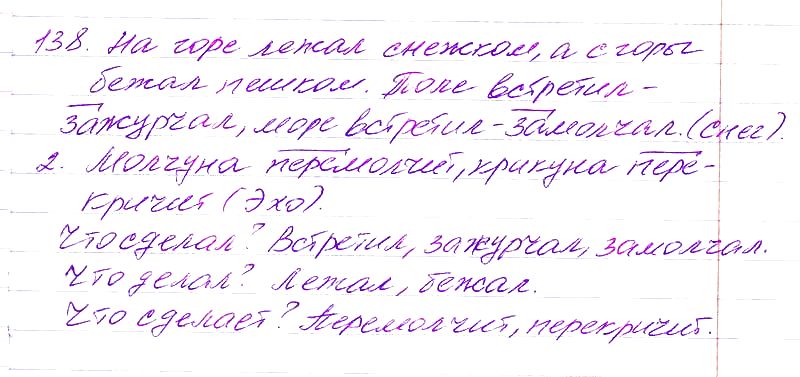 138. На горе лежал снежком, а с горы
бежал пешком. Поле встретил-
зажурчал, море встретил-замолчал. (снег).
2. Молчуна перемолчит, крикуна пере-
кричит (Эхо).
Что сделал? Встретил, зажурчал, замолчал.
Что делал? Лежал, бежал.
Что сделает? Перемолчит, перекричит.